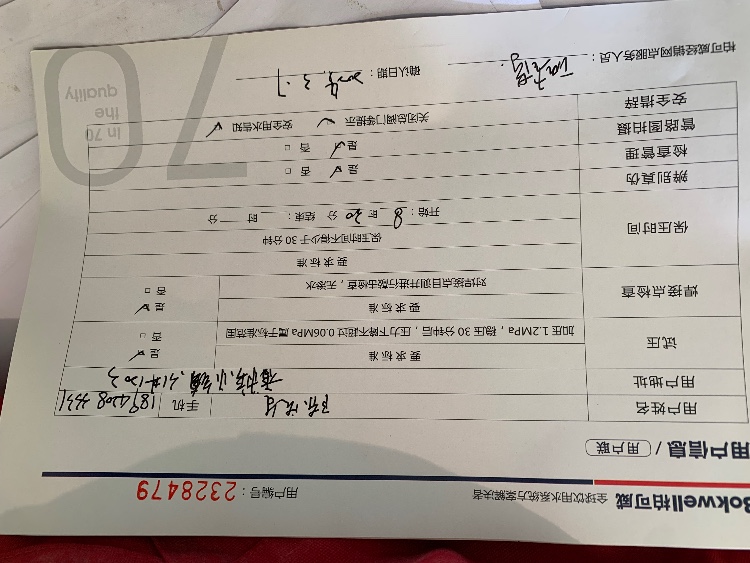 Bokwell柏可威 全球饮用水系统方案解决者 用户编号：2328479
用户信息 / 用户联
用户姓名 手机
用户地址
试压 要求标准 是 ✓
加压1.2MPa，稳压30分钟后，压力下降不超过0.06MPa属于标准范围 否 □
焊接点检查 要求标准 是 ✓
对焊接点目测并进行敲击检查，无渗水 否 □
保压时间 要求标准
保压时间不得少于30分钟
开始：8 时 20 分 结束： 时 分
辨别真伪 是 ✓ 否 □
检查管理 是 ✓ 否 □
管路图拍摄
安全措辞 关闭总阀门等提示 ✓ 安全用水告知 ✓
柏可威经销网点服务人员： 确认日期：
70
in 70
the
quality